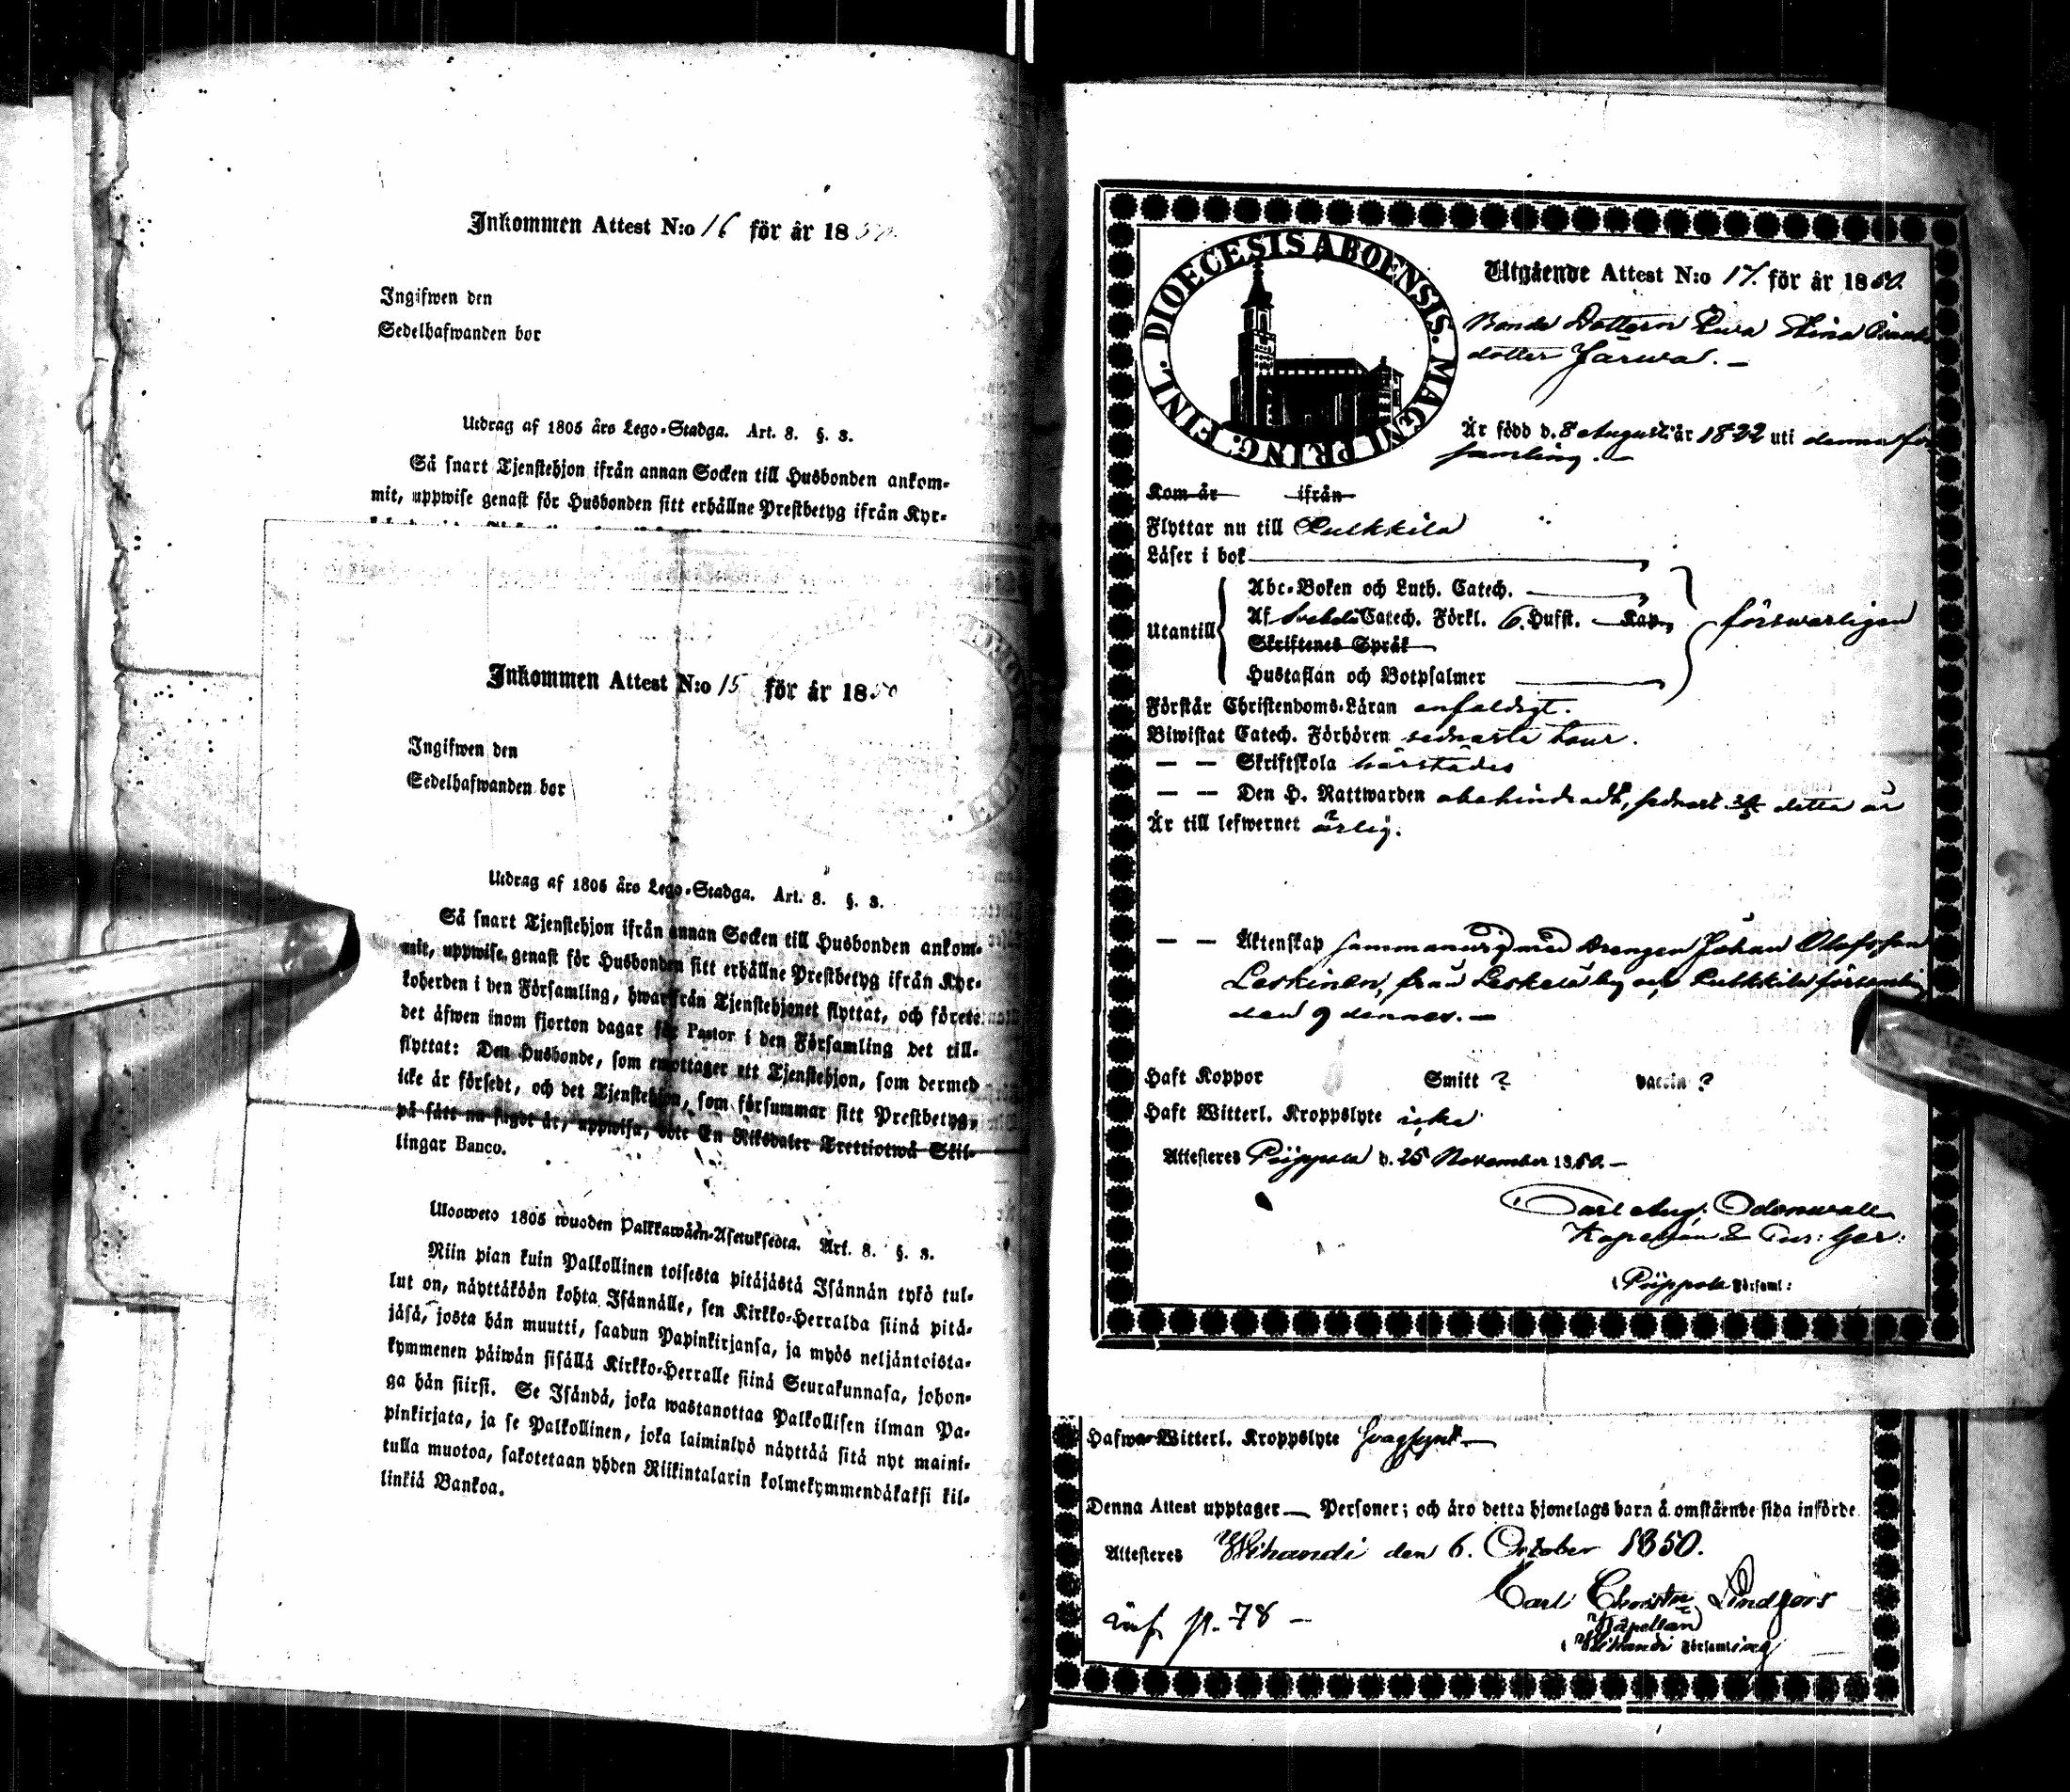 Inkommen Attest N:o 16 för år 1850.
Ingifwen den
Sedelhafwanden bor
Utdrag af 1805 års Lego-Stadga. Art. 8. §. 3.
Så snart Tjenstehjon ifrån annan Socken till Husbonden ankom-
mit, uppwise genast för Husbonden sitt erhållne Prestbetyg ifrån Kyr-
Inkommen Attest N:o 15 för år 1850
Ingifwen den
Sedelhafwanden bor
Utdrag af 1805 års Lego-Stadga. Art. 8. §. 3.
Så snart Tjenstehjon ifrån annan Socken till Husbonden ankom-
mit, uppwise genast för Husbonden sitt erhållne Prestbetyg ifrån Kyr-
koherden i den Församling, hwarfrån Tjenstehjonet flyttat, och förete
det äfwen inom fjorton dagar för Pastor i den Församling det till-
flyttat: Den Husbonde, som emottager ett Tjenstehjon, som dermed
icke är försedt, och det Tjenstehjon, som försummar sitt Prestbetyg,
på sätt nu sagdt är, uppwisa, böte En Riksdaler Trettiotwå Skil-
lingar Banco.
Uloosweto 1805 wuoden Palkkawäen-Asetuksesta. Art. 8. §. 3.
Niin pian kuin Palkollinen toisesta pitäjästä Isännän tykö tul-
lut on, näyttäköön kohta Isännälle, sen Kirkko-Herralda siinä pitä-
jäsä, josta hän muutti, saadun Papinkirjansa, ja myös neljäntoista-
kymmenen päiwän sisällä Kirkko-Herralle siinä Seurakunnasa, johon-
ga hän siirsi. Se Isändä, joka wastanottaa Palkollisen ilman Pa-
pinkirjata, ja se Palkollinen, joka laiminlyö näyttää sitä nyt maini-
tulla muotoa, sakotetaan yhden Riikintalarin kolmekymmendäkaksi kil-
linkiä Bankoa.
DIOECESIS ABOENSIS. MAGNI PRING. FINL.
Utgående Attest N:o 17. för år 1850.
Bonde Dottern Ewa Stina
dotter Järwa. —
Är född d. 8 Augusti år 1822 uti denna för
samling. —
Kom år ifrån
Flyttar nu till Pulkkila
Läser i bok
Utantill
Abc-Boken och Luth. Catech.
Af Svebelii Catech. Förkl. 6. Hufst. Kap,
Skriftenes Språk
Hustaflan och Botpsalmer
försvarligen
Förstår Christendoms-Läran enfaldigt.
Biwistat Catech. Förhören sednaste tour.
— — Skriftskola härstädes
— — Den H. Nattwarden obehindradt, sednast detta år
Är till lefwernet ärlig.
— — Äktenskap sammanvigd med Drengen Johan Olofsson
Leskinen, från Leskelä by och Pulkkila församling
den 9 dennes. —
Haft Koppor Smitt ? vaccin ?
Haft Witterl. Kroppslyte icke
Attesteres Piippola d. 25 November 1850. —
Carl Aug. Odenwall
Kapellan &
i Piippola Församl:
Hafwa Witterl. Kroppslyte svagsynt —
Denna Attest upptager — Personer; och äro detta hjonelags barn å omstående sida införde
Attesteres Wihandi den 6. October 1850.
Carl Christer Lindfors
Kapellan
i Wihandi Församling
inf p. 78 —